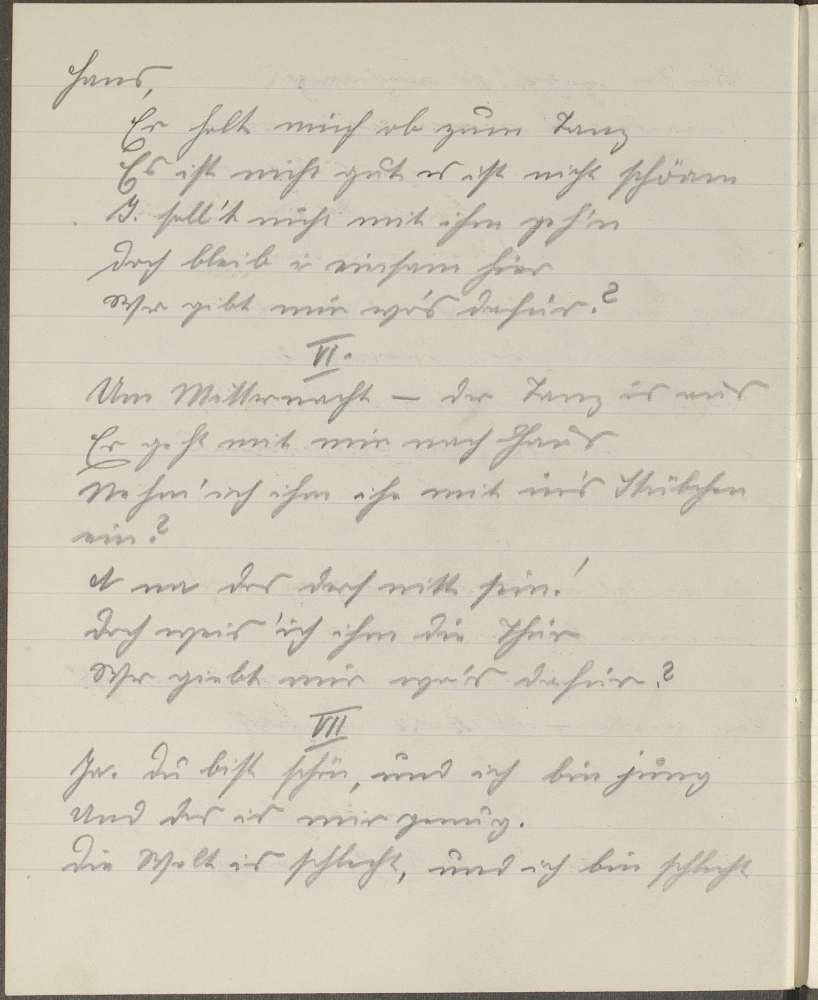 Hans,
Er holt mich ab zum Tanz
Es ist nicht gut es ist nicht schöam
I. soll't nicht mit ihm geh'n
Doch bleib i einsam hier
Wer gibt mir wo's dafür.?
VI.
Um Mitternacht — der Tanz is aus
Er geht mit mir nach Haus
Nehm' ich ihm ihr mit in's Stübchen
ein?
A na des derf nitt sein!
Doch weis' ich ihm die Thür
Wer giebt mir wo's dafür?
VII
Ja. Du bist schön, und ich bin jung
Und des is mir genug.
Die Welt is schlecht, und ich bin schlecht